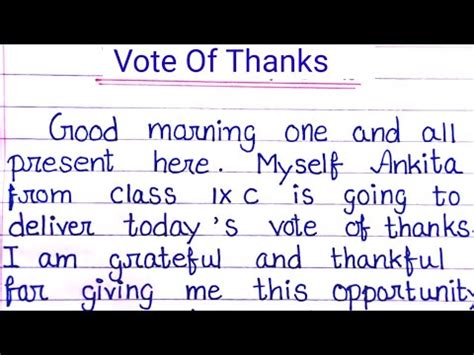 Vote Of Thanks
Good morning one and all
present here. Myself Ankita
from class IX C is going to
deliver today's vote of thanks.
I am grateful and thankful
for giving me this opportunity